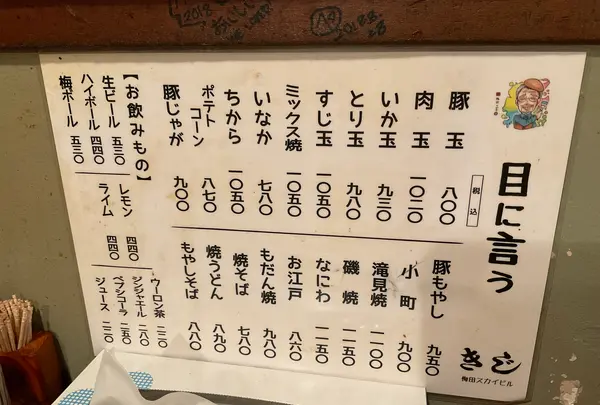 2018
2018.8.28
目に言う
税込
豚玉 八〇〇
肉玉 一〇二〇
いか玉 九三〇
とり玉 九八〇
すじ玉 一〇五〇
ミックス焼 一〇五〇
ちから 一〇五〇
いなか 七八〇
ポテトコーン 八七〇
豚じゃが 九〇〇
豚もやし 九五〇
小町 九〇〇
滝見焼 一一〇〇
磯焼 一一五〇
なにわ 一一五〇
お江戸 八六〇
もだん焼 九八〇
焼そば 七八〇
焼うどん 八九〇
もやしそば 八八〇
【お飲みもの】
生ビール 五三〇
ハイボール 四四〇
梅ボール 五三〇
レモン 四四〇
ライム 四四〇
ウーロン茶 二二〇
ジンジャエール 二八〇
ペプシコーラ 二五〇
ジュース 二二〇
きじ
梅田スカイビル